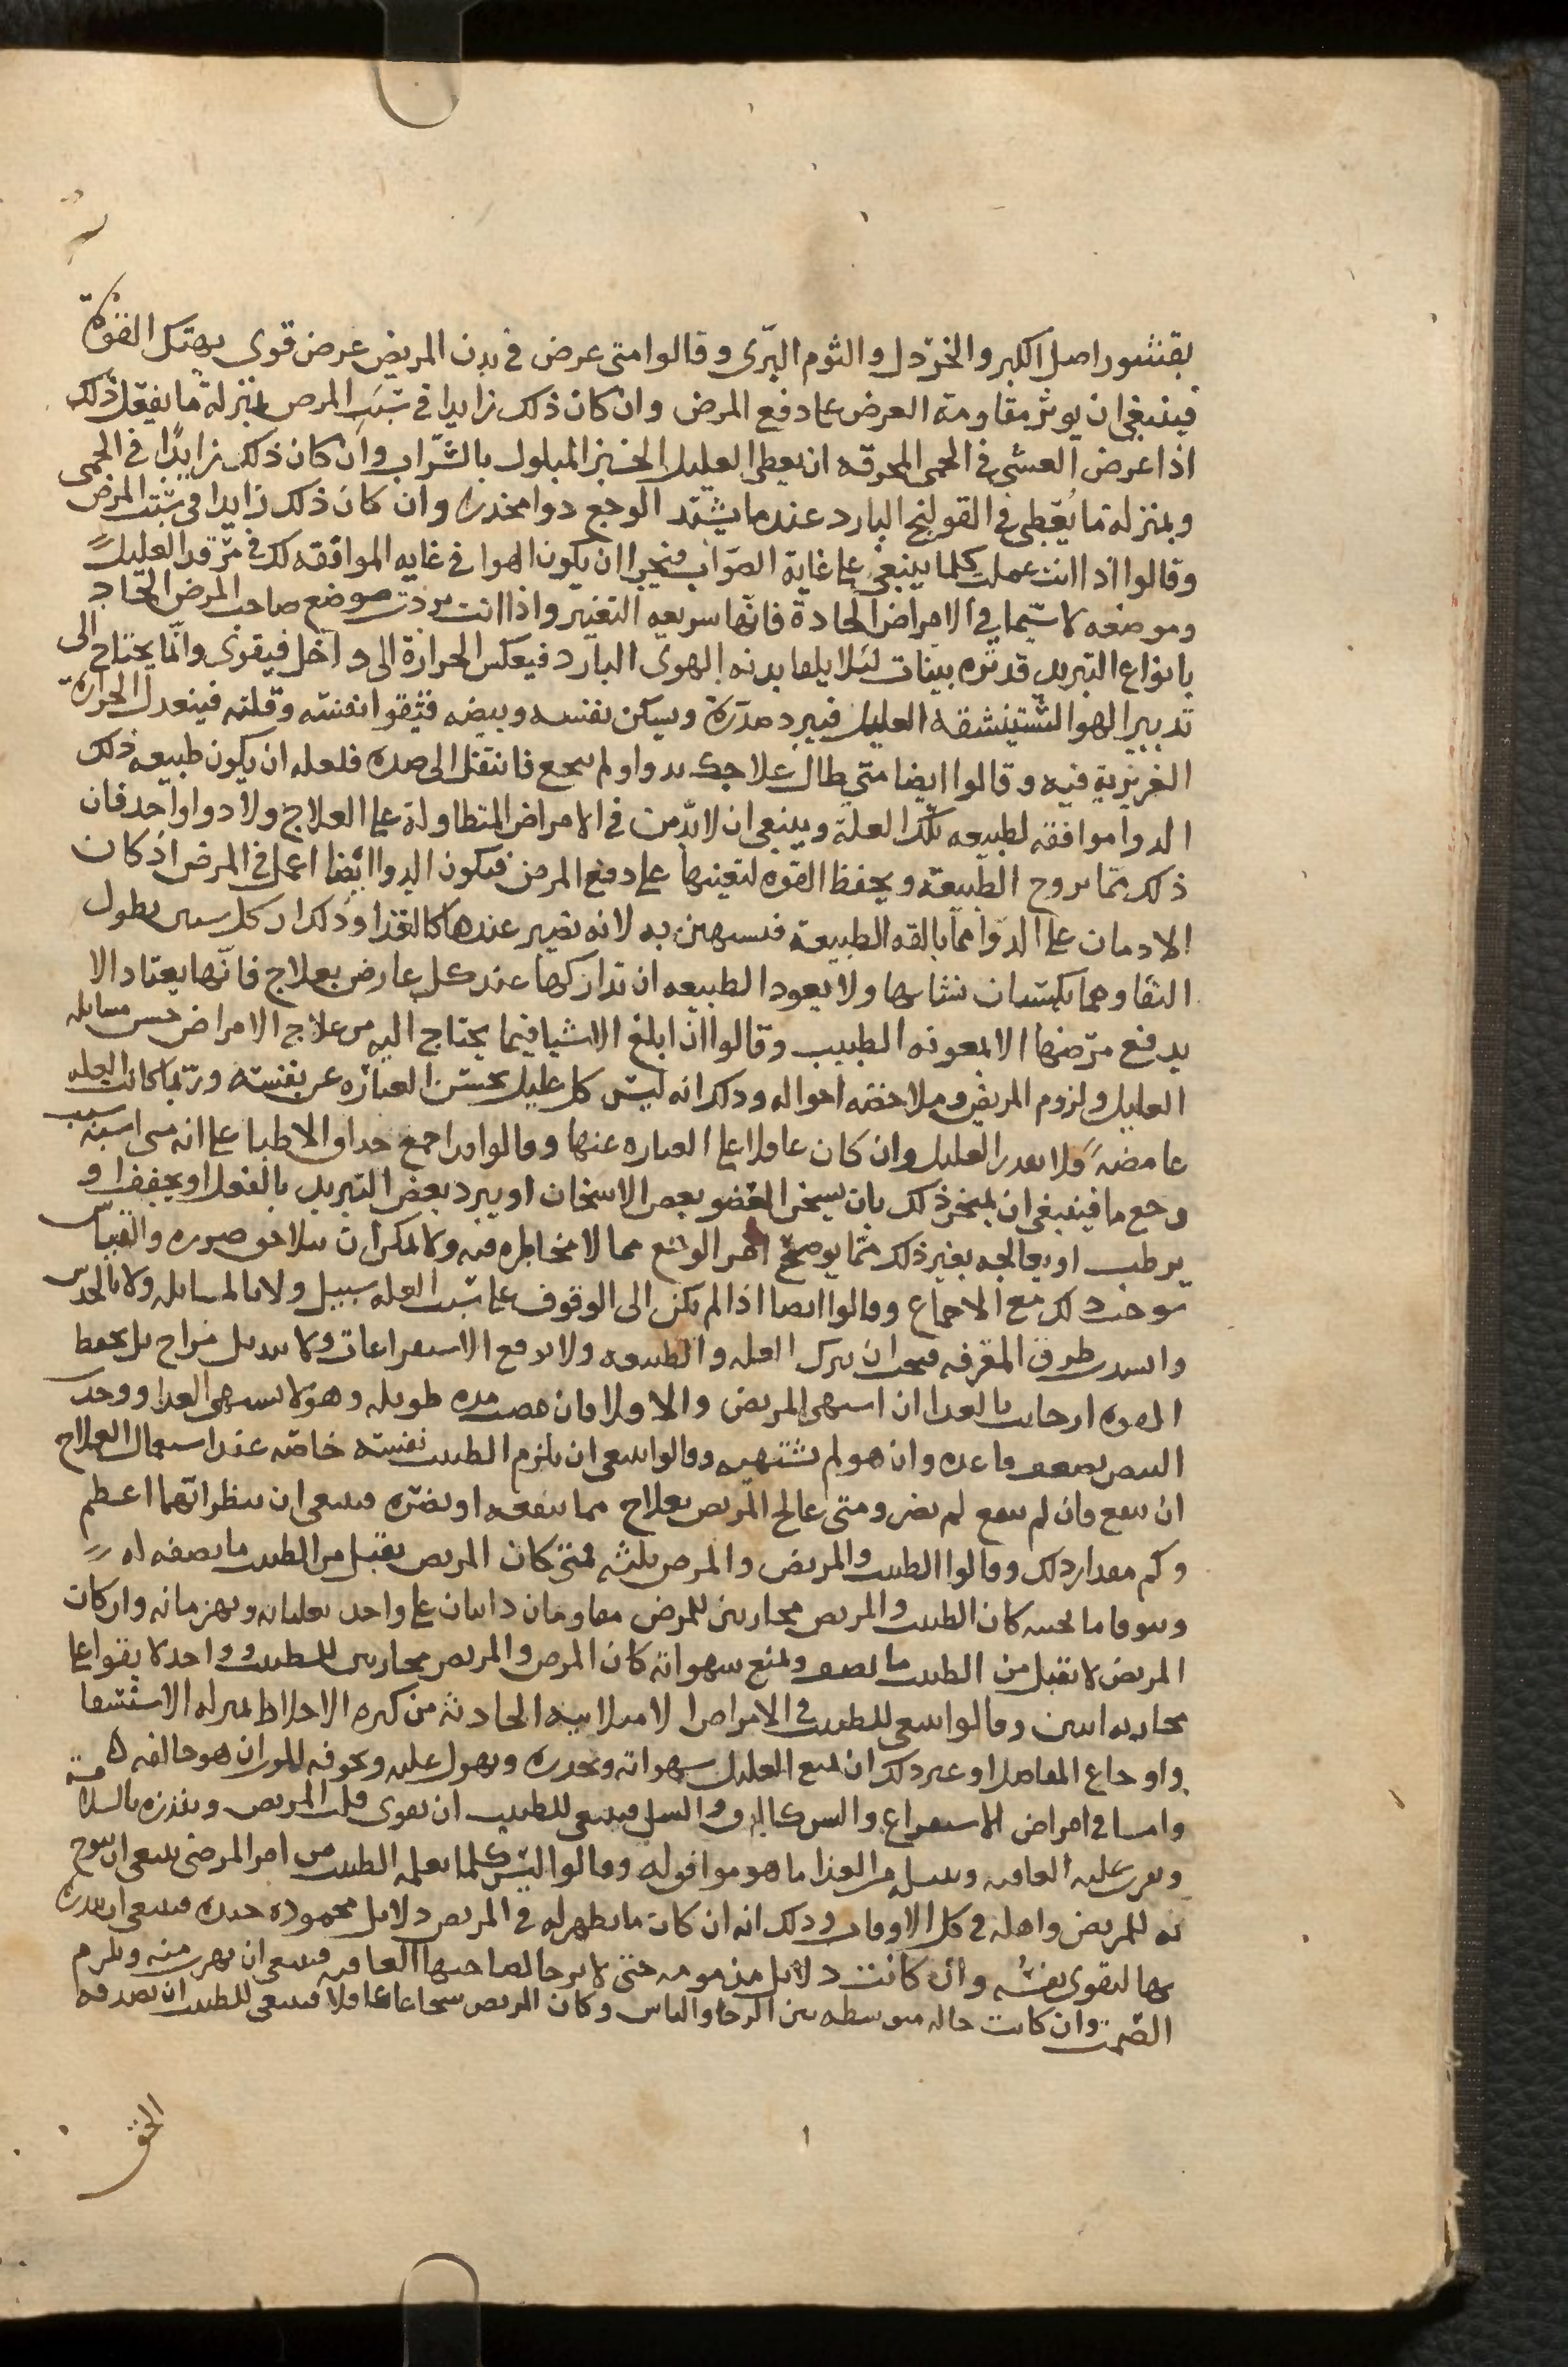 بقشور اصل الكبر والخردل والثوم البرّى وقالوا متى عرض فى بدن المريض عرض قوى يهتك القوة
فينبغى ان يوثر مقاومة العرض على دفع المرض وان كان ذلك زايدا فى سَبَب المرض بمنزلة ما يفعل ذلك
اذا عرض الغشى فى الحمى المحرقه ان يعطى العليل الخبز المبلول بالشراب وان كان ذلك زايدًا فى الحمى
وبمنزلة ما يُعطى فى القولنج البارد عندما يشتد الوجع دوا مخدرا وان كان ذلك زايدا فى سبب المرض
وقالوا اذا انت عملت كلما ينبغى على غاية الصواب فتحرا ان يكون الهوا فى غايه الموافقه لك فى مرقد العليل
وموضعه لا سيّما فى الامراض الحادة فانها سريعه التغيّر واذا انت بردت موضع صاحب المرض الحاد
بانواع التبريد فدثره بثياب ليَلا يلقا بدنه الهوى البارد فيعكس الحرارة الى داخل فيقوى وانّما يحتاج الى
تدبير الهوا لتستنشقه العليل فيبرد صدره ويسكن نفسه ونبضه فتبقوا نفسه وقلته فينعدل الحرارة
الغريزية فيه وقالوا ايضا متى طال علاجك بدوا ولم ينجع فانتقل الى ضده فلعله ان يكون طبيعه ذلك
الدوا موافقه لطبيعه تلك العلة وينبغى ان لا يدمن فى الامراض المتطاوله على العلاج ولا دوا واحد فان
ذلك ممّا يروح الطبيعة ويحفظ القوه لتعينها على دفع المرض فيكون الدوا ايضا اعمل فى المرض اذ كان
الادمان على الدوا مما يالفه الطبيعة فتستهين به لانه يصير عندها كالغذا وذلك ان كل شيين يطول
التقاوهما يكتسبان تشابها ولا يعود الطبيعه ان تداركها عند كل عارض بعلاج فانّها يعتاد الا
يدفع مرّضها الا بمعونه الطبيب وقالوا ان ابلغ الاشيا فيما يحتاج اليه من علاج الامراض حسن مسايله
العليل ولزوم المريض وملاحظه احواله وذلك انه ليس كل عليل يحسن العبارة عن نفسه وربما كانت العله
غامضه فلا يقدر العليل وان كان عاقلا على العباره عنها وقالوا قد اجمع حذاق الاطبا على انه متى اشتبه سبب
وجع ما فينبغى ان يمتحن ذلك بان يسخن العضو بعض الاسخان او يبرد بعض التبريد بالفعل او يجفف او
يرطب او يعالجه بغير ذلك ممّا يوضح امر الوجع مما لا مخاطره فيه ولا يمكن ان يتلاحق ضرره والقياس
يوخذ لك مع الاجماع وقالوا ايضا اذا لم يكن الى الوقوف على سبب العله سبيل ولا بالمسايله ولا بالحدس
وانسدت طرق المعرفه فيجب ان يترك العله والطبيعه ولا يدفع الاستفراغات ولا تبديل مزاج بل يحفظ
القوه ان خارت بالغذا ان اشتهى المريض والا ولا فان مضت مده طويله وهو لا يشتهى الغذا ووجد
النبض يضعف فاغده وان هو لم يشتهيه وقالوا ينبغى ان يلزم الطبيب نفسه خاصّه عند استعمال العلاج
ان ينفع فان لم ينفع لم يضر ومتى عالج المريض بعلاج مما ينفعه او يضره فينبغى ان ينظر ايهما اعظم
وكم مقدار ذلك وقالوا الطبيب والمريض والمرض ثلثه فمتى كان المريض يقبل من الطبيب ما يصفه له
ويتوقا ما نحيه كان الطبيب والمريض محاربين للمرض مقاومان واثنان على واحد يغلبانه ويهزمانه وان كان
المريض لا يقبل من الطبيب ما يصف ويتبع شهواته كان المرض والمريض محاربين للطبيب وواحد لا يقوا على
محاربه اثنين وقالوا ينبغى للطبيب فى الامراض الامتلاييه الحادثه من كثره الاخلاط بمنزله الاستسقا
واوجاع المفاصل او غير ذلك ان يمنع العليل شهواته ويحذره ويهول عليه ويخوفه الموت ان هو خالفه
واما فى امراض الاستفراغ واليبس كالدق والسل فينبغى للطبيب ان يقوى قلب المريض وينذره بالسلامة
ويقرب عليه العافيه وينيله من الغذا ما هو موافق له وقالوا ليس كلما يعلمه الطبيب من امر المرضى ينبغى ان يبوح
به للمريض واهله فى كل الاوقات وذلك انه ان كان ما يظهر له فى المريض دلايل محموده جيده فينبغى ان ينذره
بها لتقوى نفسُه وان كانت دلايل مذمومه حتى لا يرجا لصاحبها العافيه فينبغى ان يهرب منه ويلزم
الصّمت وان كانت حاله متوسطه بين الرجا والياس وكان المريض شجاعا عاقلا فينبغى للطبيب ان يصدقه
الحق